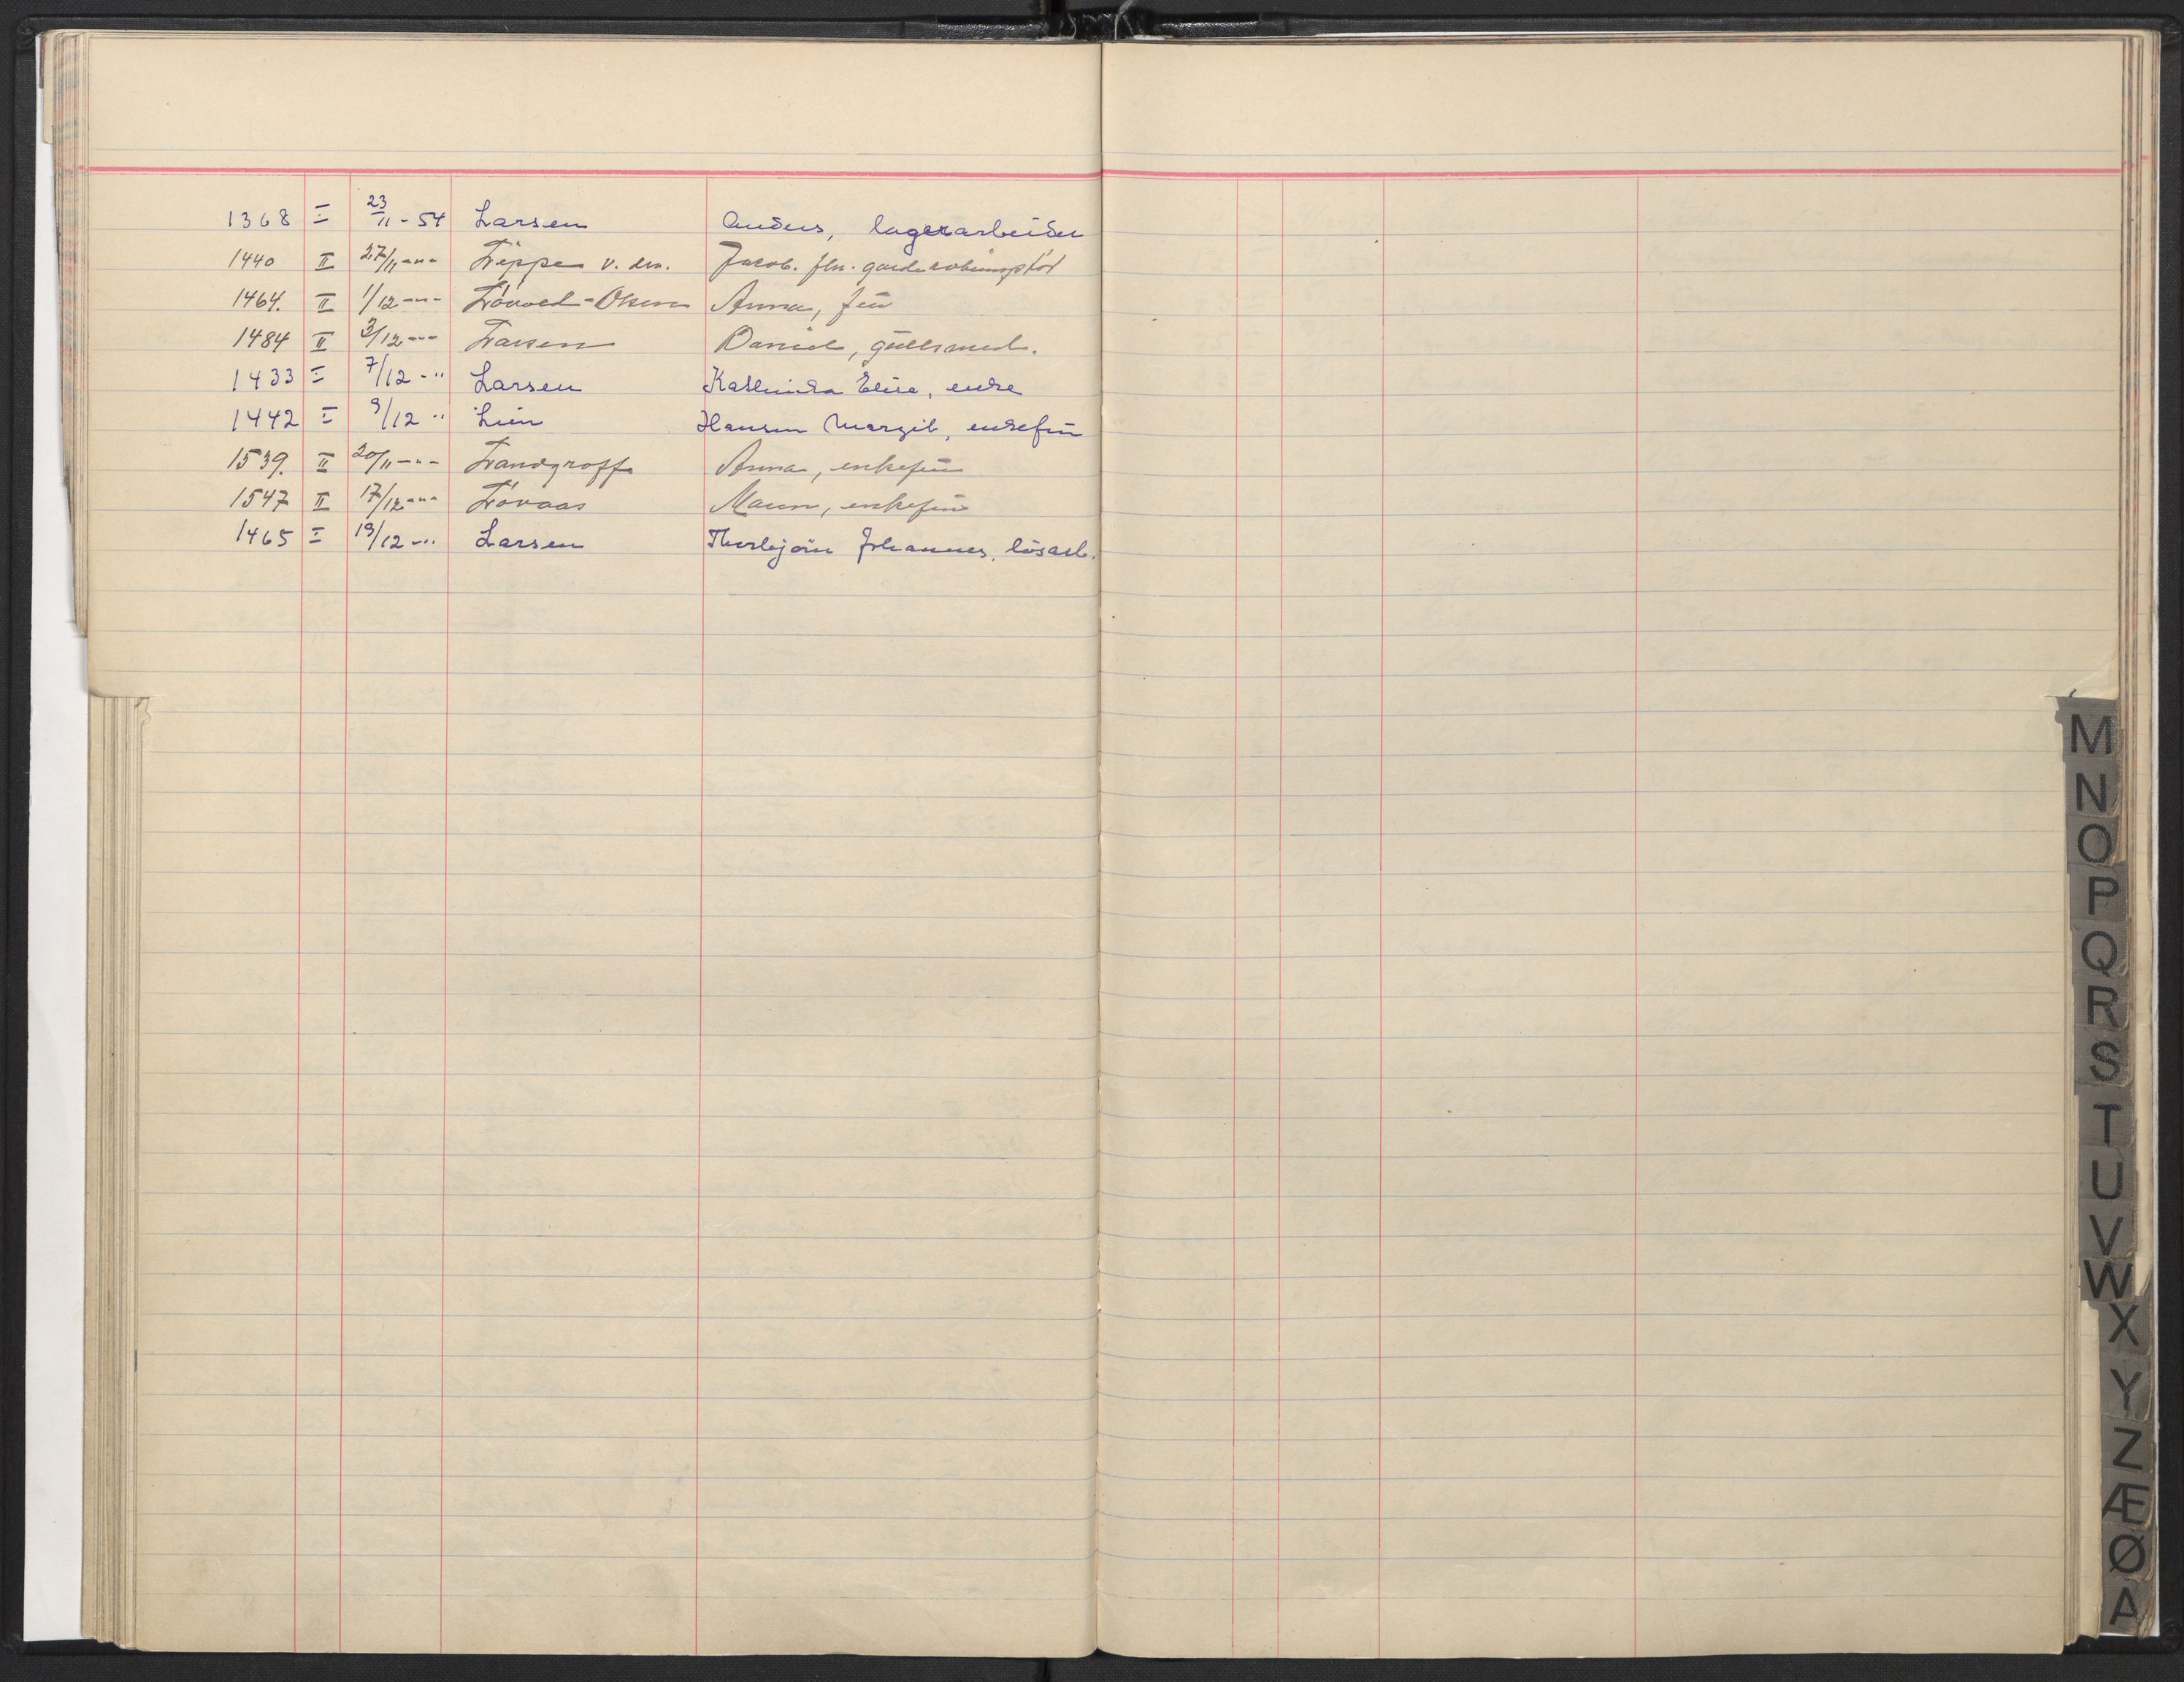 1368 I 23/11-54 Larsen Anders, lagerarbeider
1440 II 27/11 -"- Lippe v. der. Jacob. fhv. garderobeinsp
1464. II 1/12 -"- Olsen Anna, frū
1484 II 3/12 -"- Larsen Daniel, gūllsmed.
1433 I 7/12 -" Larsen Elise, enke
1442 I 9/12 " Lien Hansen Margit, enkefrū
1539. II 20/11 -"- Landgroff Anna, enkefrū
1547 II 17/12 -"- Lövaas enkefrū
1465 I 19/12 -" Larsen Thorbjörn Johannes, lösarb.
M
N
O
P
Q
R
S
T
U
V
W
X
Y
Z
Æ
Ø
A